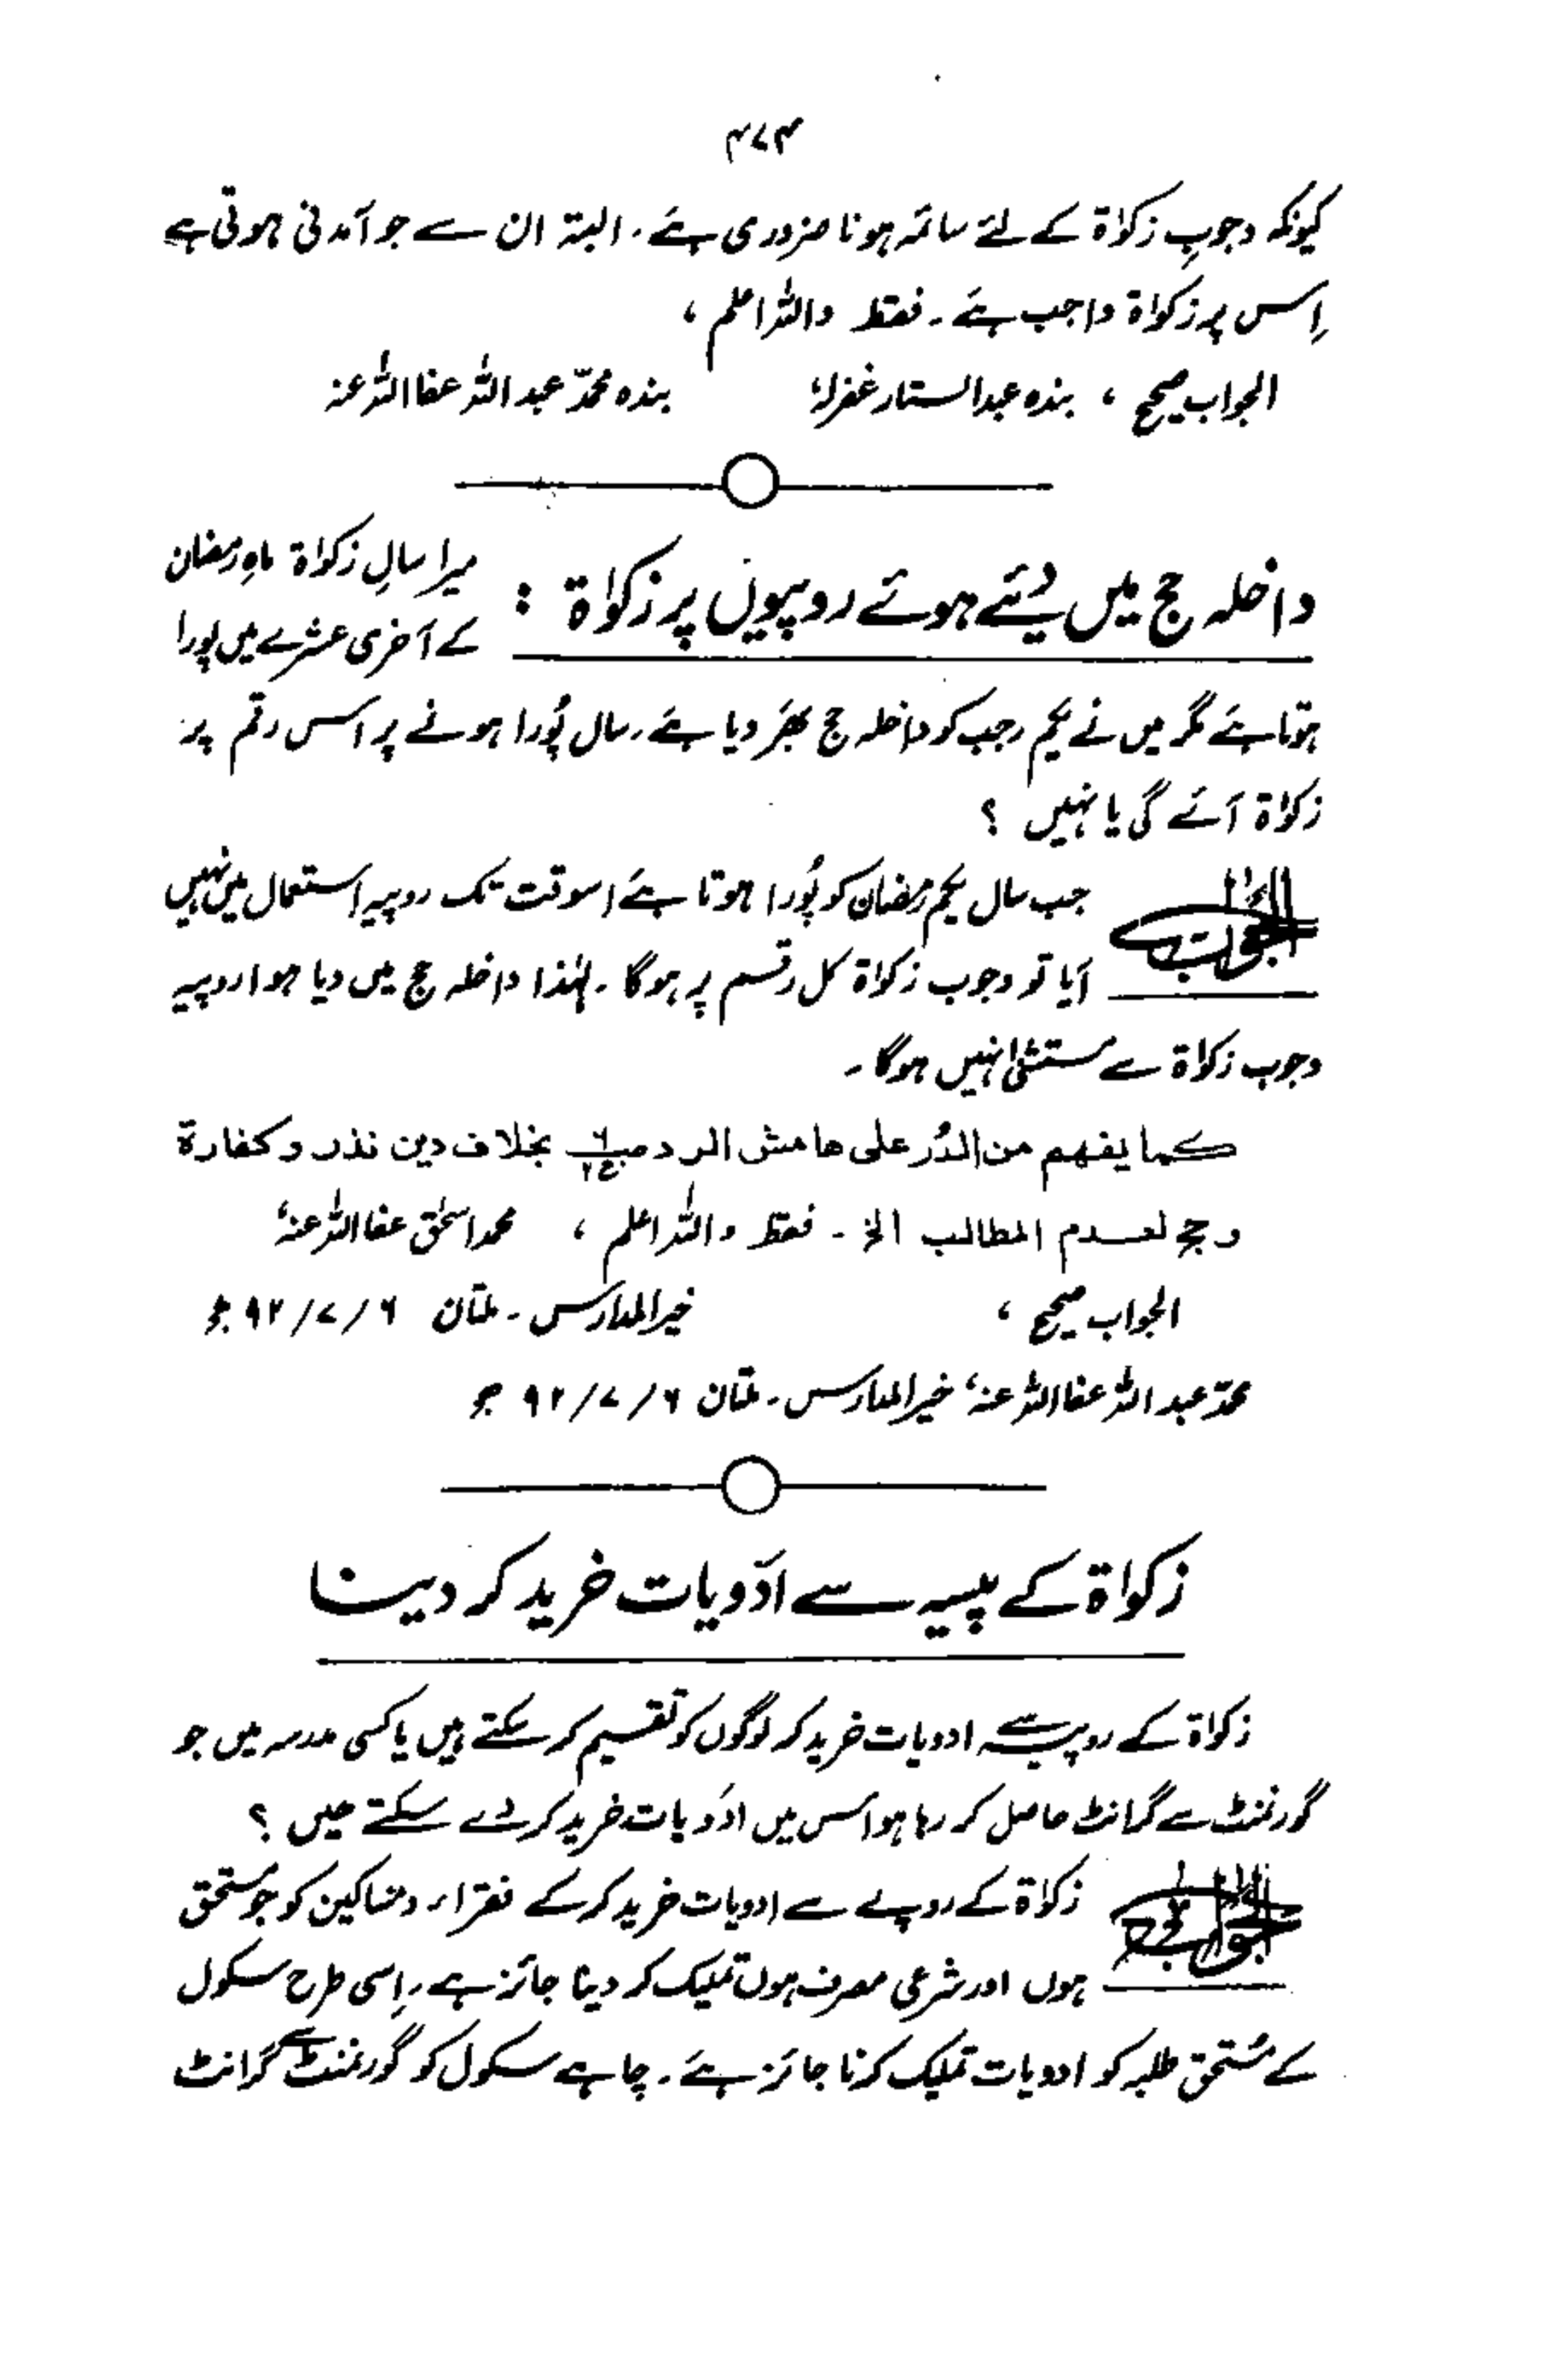 ۴۷۴
کیونکہ وجوبِ زکوٰۃ کے لئے سائمہ ہونا ضروری ہے۔ البتہ ان سے جو آمدنی ہوتی ہے
اِس پر زکوٰۃ واجب ہے۔ فقط واللہ اعلم ،
الجواب صحیح ، بندہ عبدالستار غفرلہٗ بندہ محمّد عبداللہ عفااللہ عنہ
داخلہ حج میں دیئے ہوئے روپیوں پر زکوٰۃ : میرا سالِ زکوٰۃ ماہِ رمضان
کے آخری عشرے میں پورا
ہوتا ہے مگر میں نے یکم رجب کو داخلہ حج بھر دیا ہے۔ سال پُورا ہونے پر اس رقم پر
زکوٰۃ آئے گی یا نہیں ؟
الجواب جب سال یکم رمضان کو پُورا ہوتا ہے اسوقت تک روپیہ استعمال میں نہیں
آیا تو وجوب زکوٰۃ کل رقم پر ہوگا۔ لہٰذا داخلہ حج میں دیا ہوا روپیہ
وجوب زکوٰۃ سے مستثنیٰ نہیں ہوگا۔
کما یفھم من الدُر علی ھامش الرد ص۶ ج۲ بخلاف دین نذر و کفارۃ
و حج لعدم المطالب الخ ۔ فقط واللہ اعلم ، محمد اسحٰق عفااللہ عنہٗ
الجواب صحیح ، خیرالمدارس ۔ ملتان ۶/۷/۹۲ ھ
محمّد عبداللہ عفااللہ عنہٗ خیرالمدارس ۔ ملتان ۶/۷/۹۲ ھ
زکوٰۃ کے پیسہ سے ادویات خرید کر دینا
زکوٰۃ کے روپیہ سے ادویات خرید کر لوگوں کو تقسیم کر سکتے ہیں یا کسی مدرسہ میں جو
گورنمنٹ سے گرانٹ حاصل کر رہا ہو اس میں ادویات خرید کر دے سکتے ہیں ؟
الجواب زکوٰۃ کے روپے سے ادویات خرید کر کے فقراء و مساکین کو جو مستحق
ہوں اور شرعی مصرف ہوں تملیک کر دینا جائز ہے۔ اِسی طرح سکول
کے مستحق طلبہ کو ادویات تملیک کرنا جائز ہے۔ چاہے سکول کو گورنمنٹ سے گرانٹ